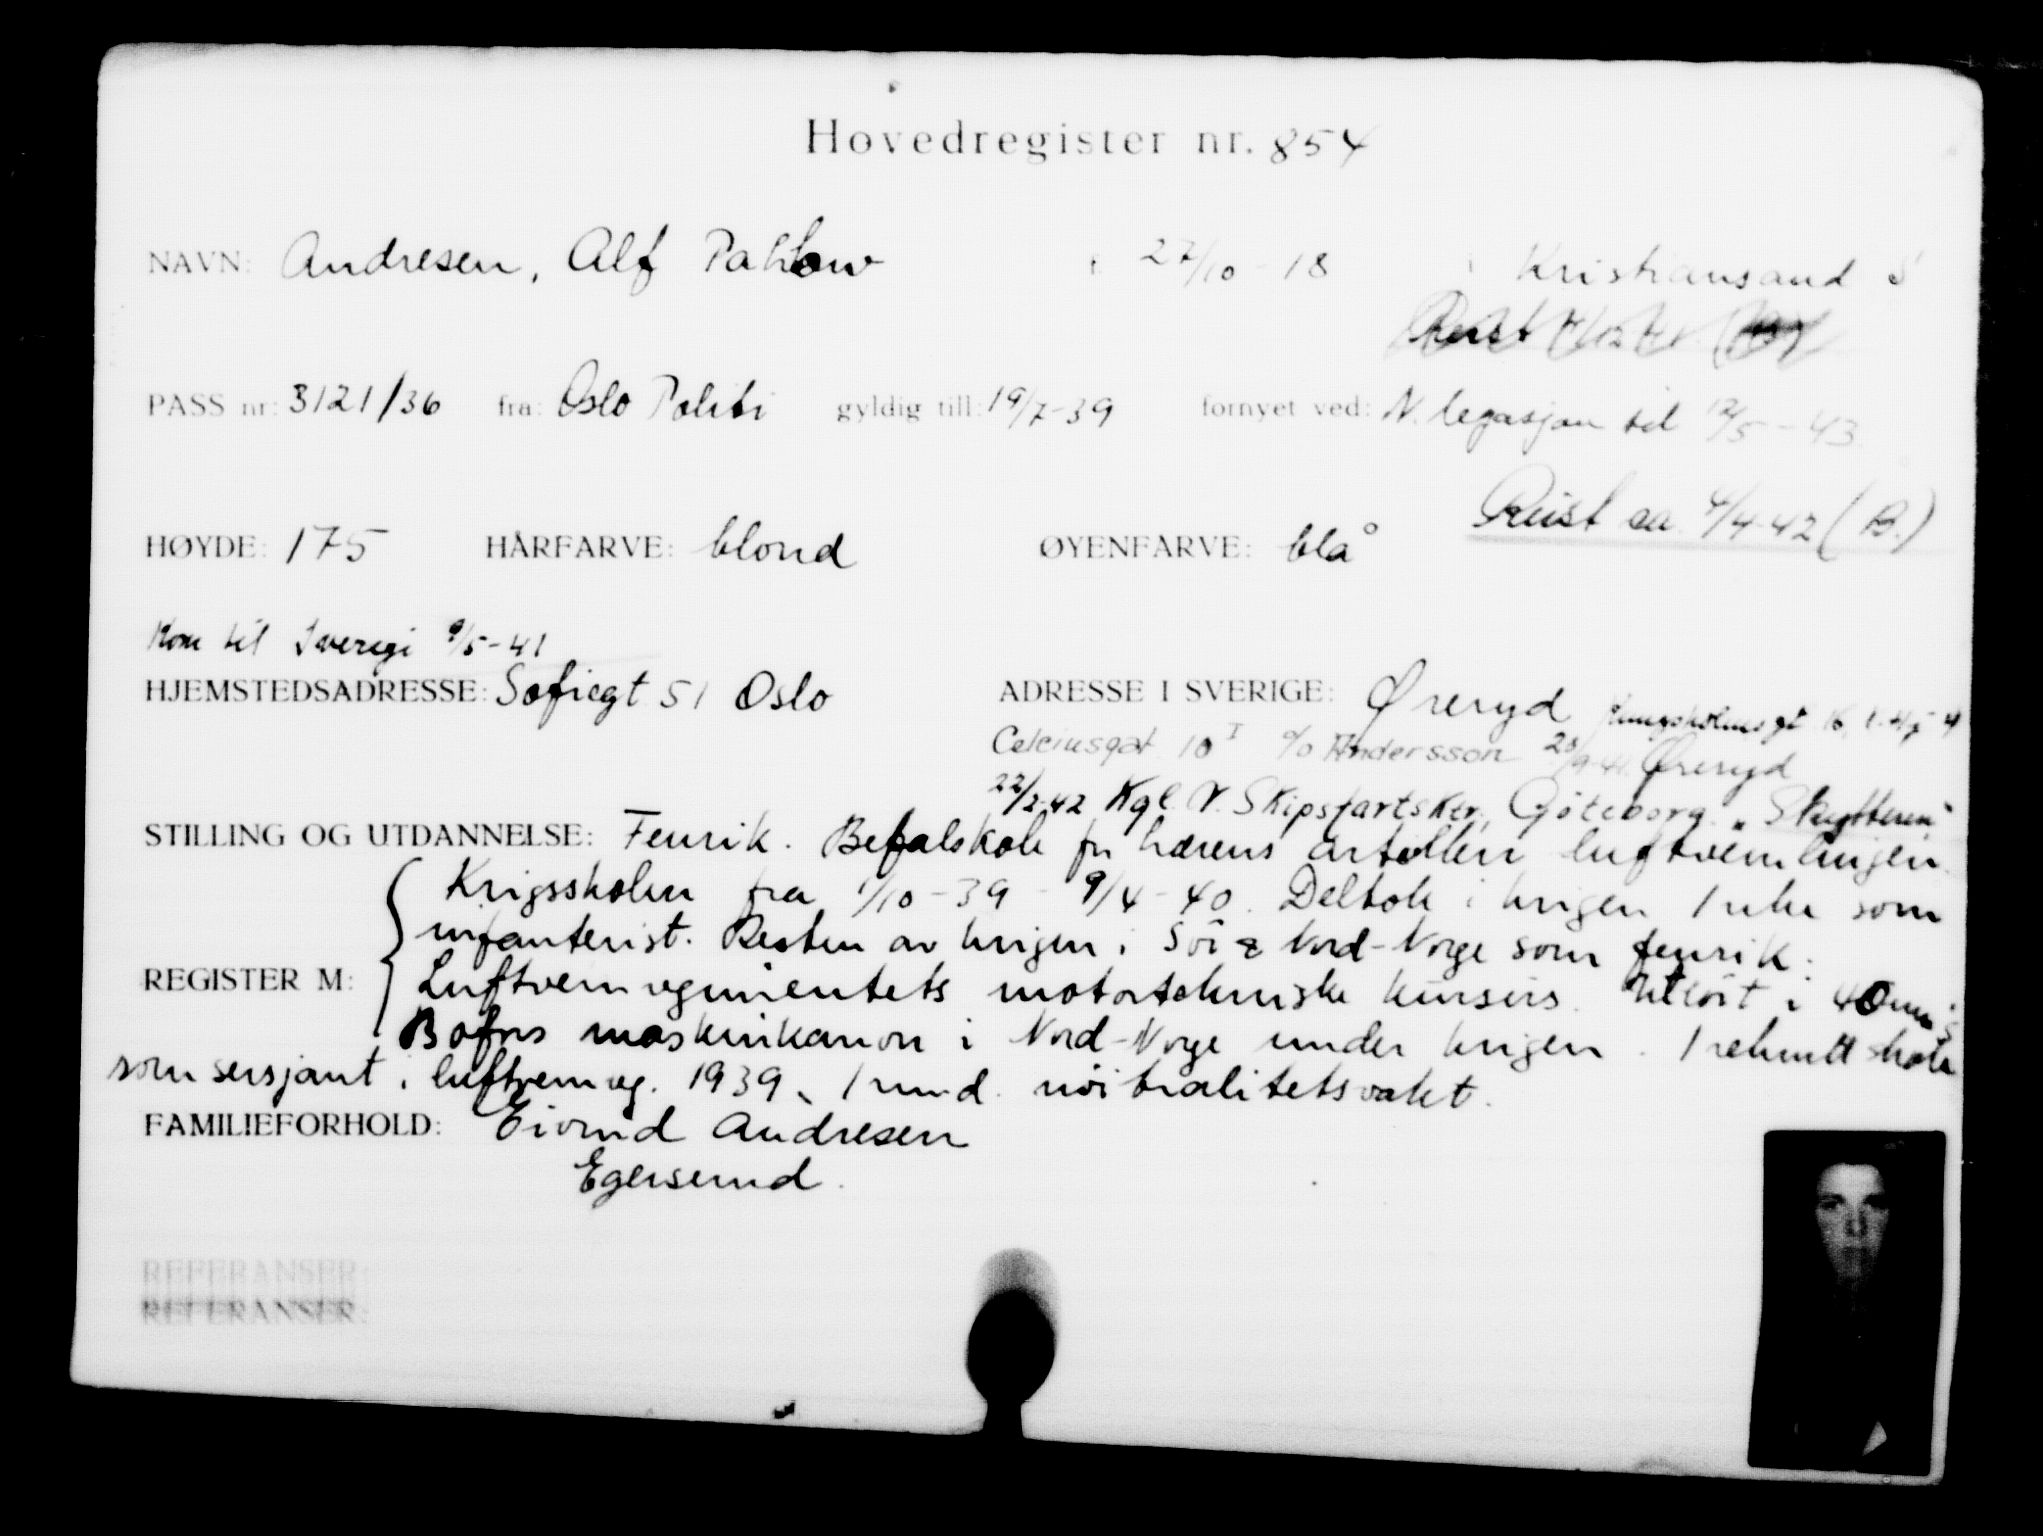 Hovedregister nr. 854
NAVN: Andresen, Alf Pahlow f. 27/10-18 i Kristiansand S
PASS nr: 3121/36 fra: Oslo Politi gyldig till: 19/7-39 fornyet ved: N. legasjon til 12/5-43
Reist ca. 4/4-42 (B.)
HØYDE: 175 HÅRFARVE: blond ØYENFARVE: blå
Kom til Sverige 9/5-41
HJEMSTEDSADRESSE: Sofiegt 51 Oslo ADRESSE I SVERIGE: Øreryd Kungsholmsgt 16
Celciusgat. 10 I c/o Andersson Øreryd
22/2-42 Kgl. N. Skipsfartsktr, Göteborg. "Skytteren"
STILLING OG UTDANNELSE: Fenrik. Befalskole for hærens artilleri luftvernlinjen.
Krigsskolen fra 1/10-39 - 9/4-40. Deltok i krigen 1 uke som
infanterist. Resten av krigen i Sör & Nord-Norge som fenrik.
REGISTER M: Luftvernregimentets motortekniske kursus. Utlört i 40 mm's
Bofors maskinkanon i Nord-Norge under krigen. 1 rekrutt skole
som sersjant i luftvernreg. 1939, 1 mnd. nöitralitetsvakt.
FAMILIEFORHOLD: Eivind Andresen
Egersund.
REFERANSER:
REFERANSER: